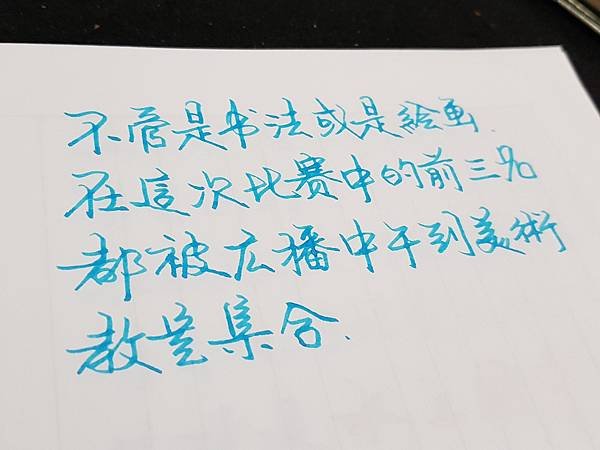 不管是书法或是絵画.
在這次比赛中的前三名
都被広播中午到美術
教室集合.